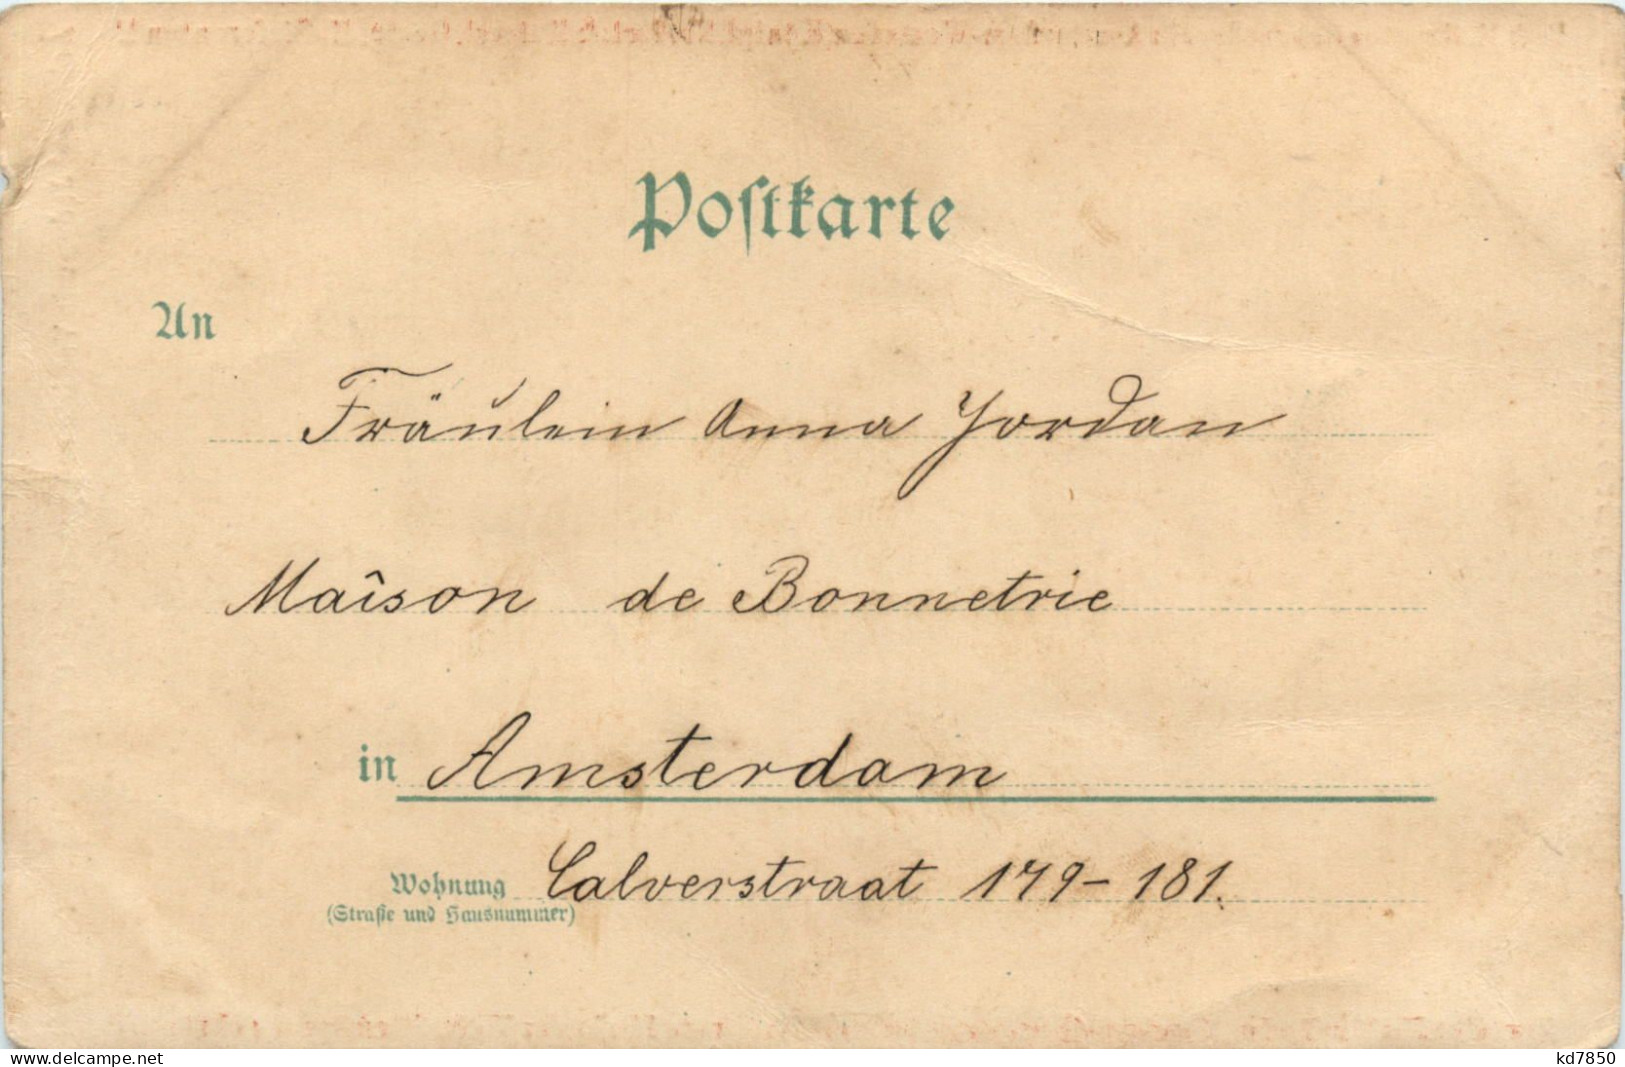 Postkarte
An
Fräulein Anna Jordan
Maîson de Bonnetrie
in Amsterdam
Wohnung Calverstraat 179-181.
(Straße und Hausnummer)
www.delcampe.net
kd7850